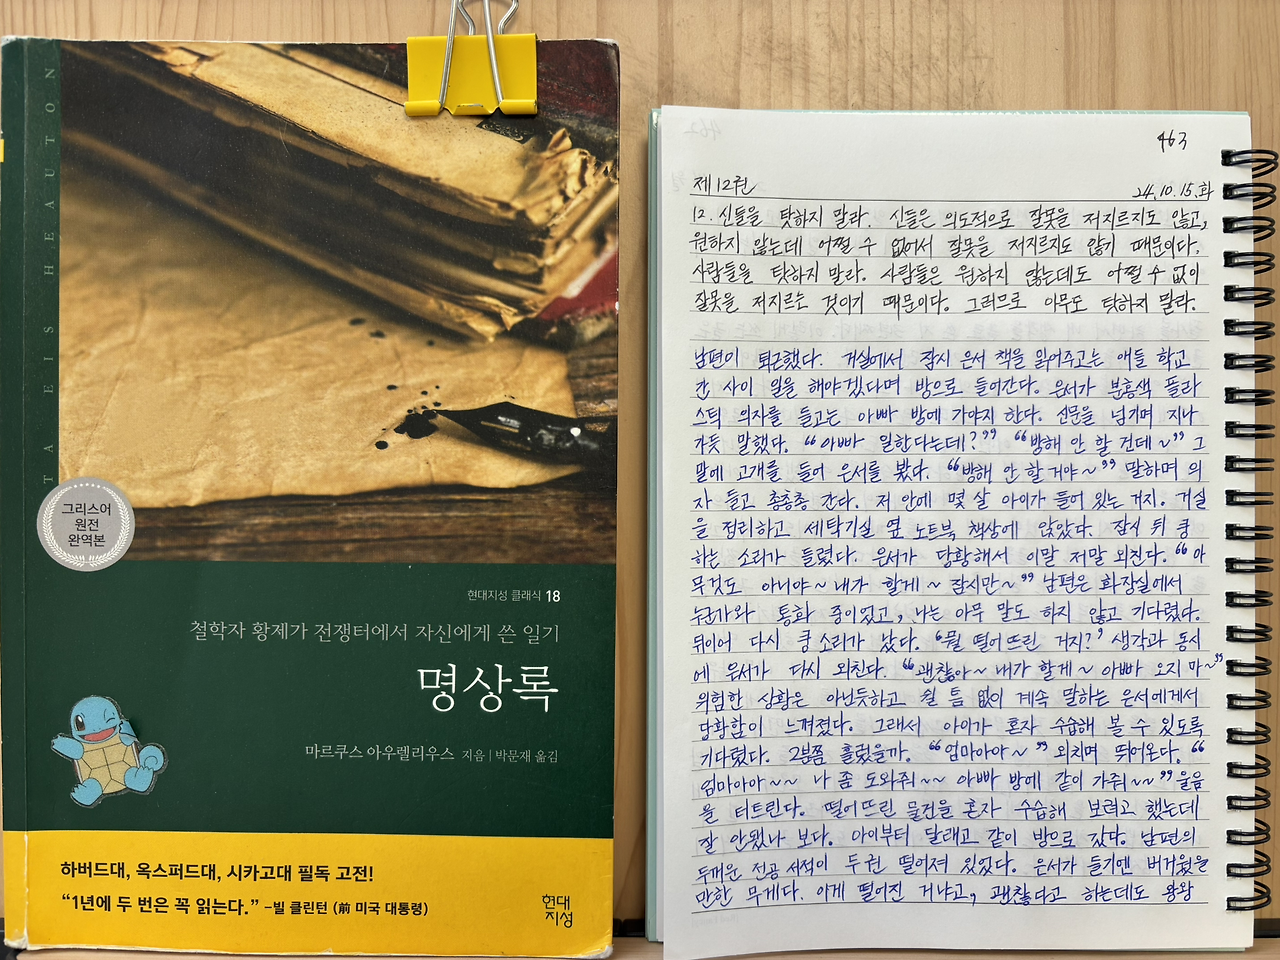 TA EIS HEAUTON
그리스어
원전
완역본
현대지성 클래식 18
철학자 황제가 전쟁터에서 자신에게 쓴 일기
명상록
마르쿠스 아우렐리우스 지음 | 박문재 옮김
하버드대, 옥스퍼드대, 시카고대 필독 고전!
“1년에 두 번은 꼭 읽는다.” -빌 클린턴 (前 미국 대통령)
현대
지성
463
제12권 24.10.15.화
12. 신들을 탓하지 말라. 신들은 의도적으로 잘못을 저지르지도 않고,
원하지 않는데 어쩔 수 없어서 잘못을 저지르지도 않기 때문이다.
사람들을 탓하지 말라. 사람들은 원하지 않는데도 어쩔 수 없이
잘못을 저지르는 것이기 때문이다. 그러므로 아무도 탓하지 말라.
남편이 퇴근했다. 거실에서 잠시 은서 책을 읽어주고는 애들 학교
간 사이 일을 해야겠다며 방으로 들어간다. 은서가 분홍색 플라
스틱 의자를 들고는 아빠 방에 가야지 한다. 신문을 넘기며 지나
가듯 말했다. “아빠 일한다는데?” “방해 안 할 건데~” 그
말에 고개를 들어 은서를 봤다. “방해 안 할거야~” 말하며 의
자 들고 총총총 간다. 저 안에 몇 살 아이가 들어 있는 거지. 거실
을 정리하고 세탁기실 옆 노트북 책상에 앉았다. 잠시 뒤 쿵
하는 소리가 들렸다. 은서가 당황해서 이말 저말 외친다. “아
무것도 아니야~ 내가 할게~ 잠시만~” 남편은 화장실에서
누군가와 통화 중이었고, 나는 아무 말도 하지 않고 기다렸다.
뒤이어 다시 쿵 소리가 났다. ‘뭘 떨어뜨린 거지?’ 생각과 동시
에 은서가 다시 외친다. “괜찮아~ 내가 할게~ 아빠 오지 마~”
위험한 상황은 아닌듯하고 쉴 틈 없이 계속 말하는 은서에게서
당황함이 느껴졌다. 그래서 아이가 혼자 수습해 볼 수 있도록
기다렸다. 2분쯤 흘렀을까. “엄마아아~” 외치며 뛰어온다. “
엄마아아~~ 나 좀 도와줘~~ 아빠 방에 같이 가줘~~” 울음
을 터트린다. 떨어뜨린 물건을 혼자 수습해 보려고 했는데
잘 안됐나 보다. 아이부터 달래고 같이 방으로 갔다. 남편의
두꺼운 전공 서적이 두 권 떨어져 있었다. 은서가 들기엔 버거웠을
만한 무게다. 이게 떨어진 거냐고, 괜찮다고 하는데도 왕왕